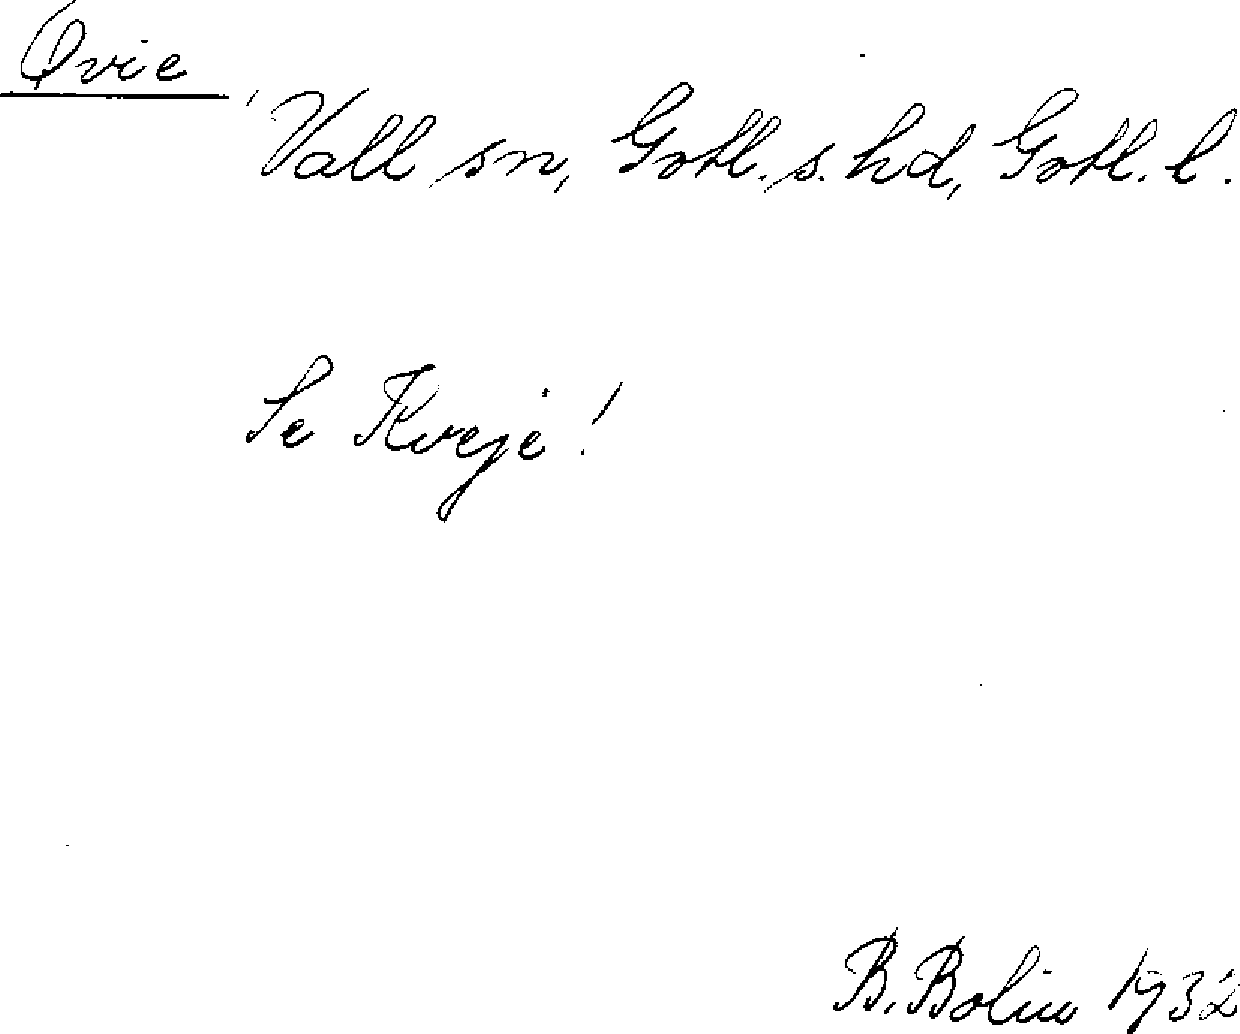 Qvie
Vall sn, Gotl. s. hd, Gotl. l.
Se Kveje!
B. Bolin 1932